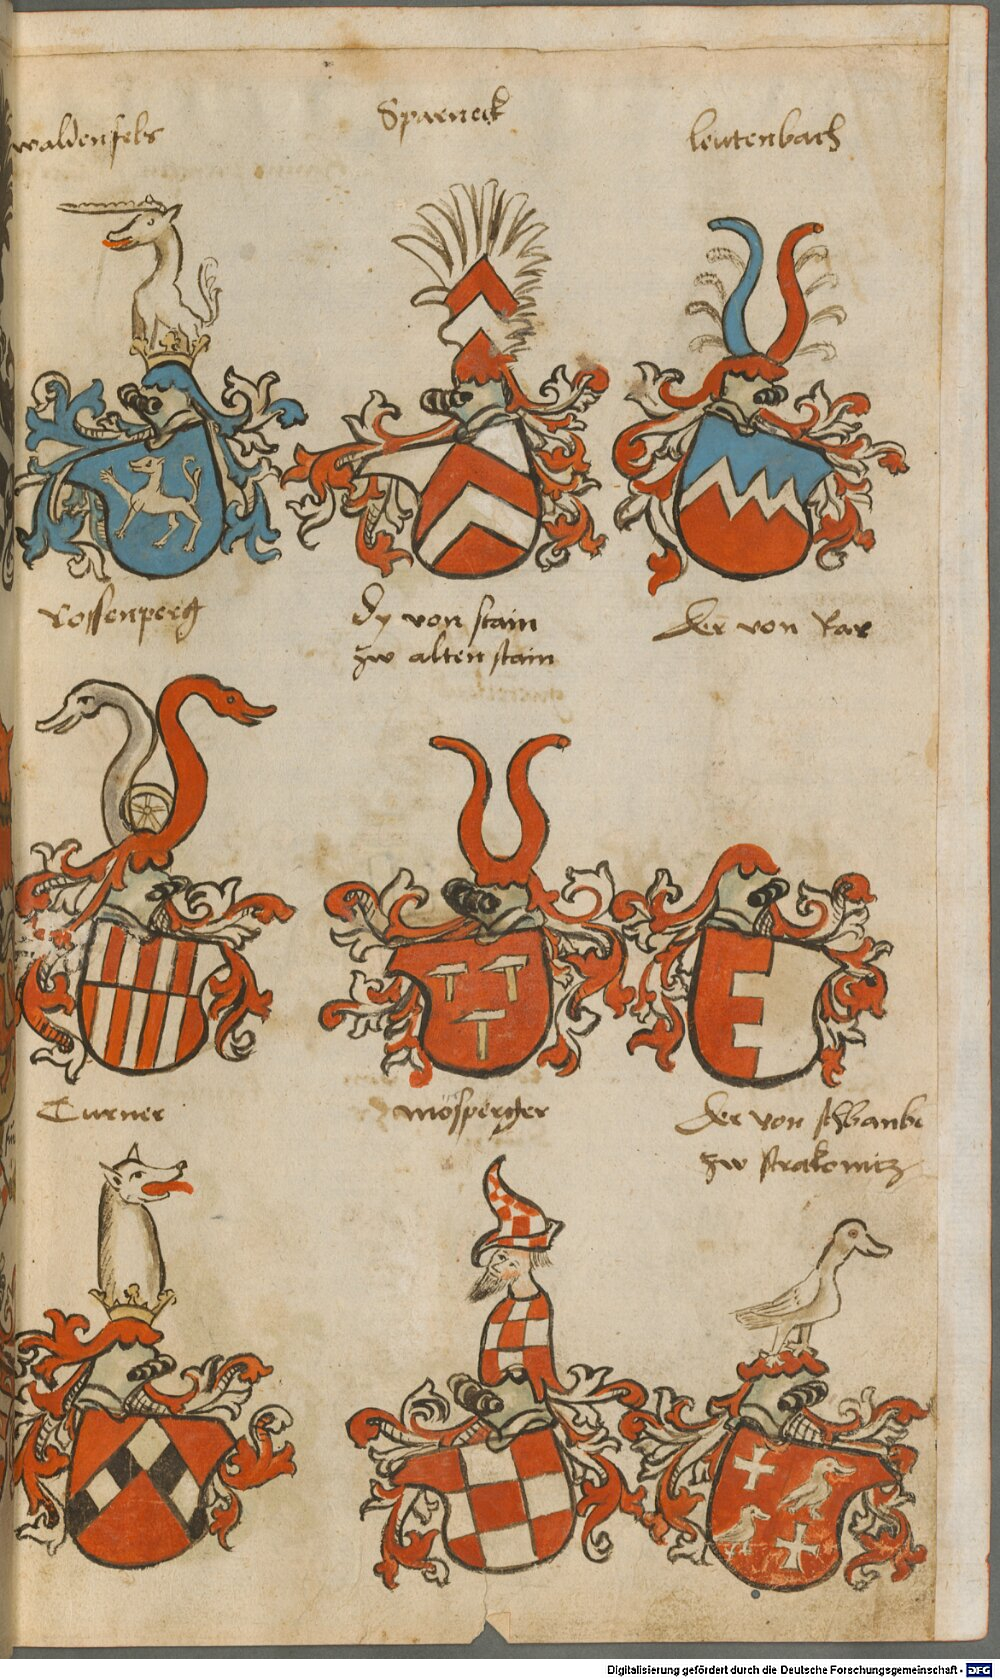 waldenfels
Sparneck
leutenbach
Rossenperg
dy von stain
zw alten stain
der von Rar
Turner
Mösperger
der von schbanbe
zw strakonitz
Digitalisierung gefördert durch die Deutsche Forschungsgemeinschaft - DFG